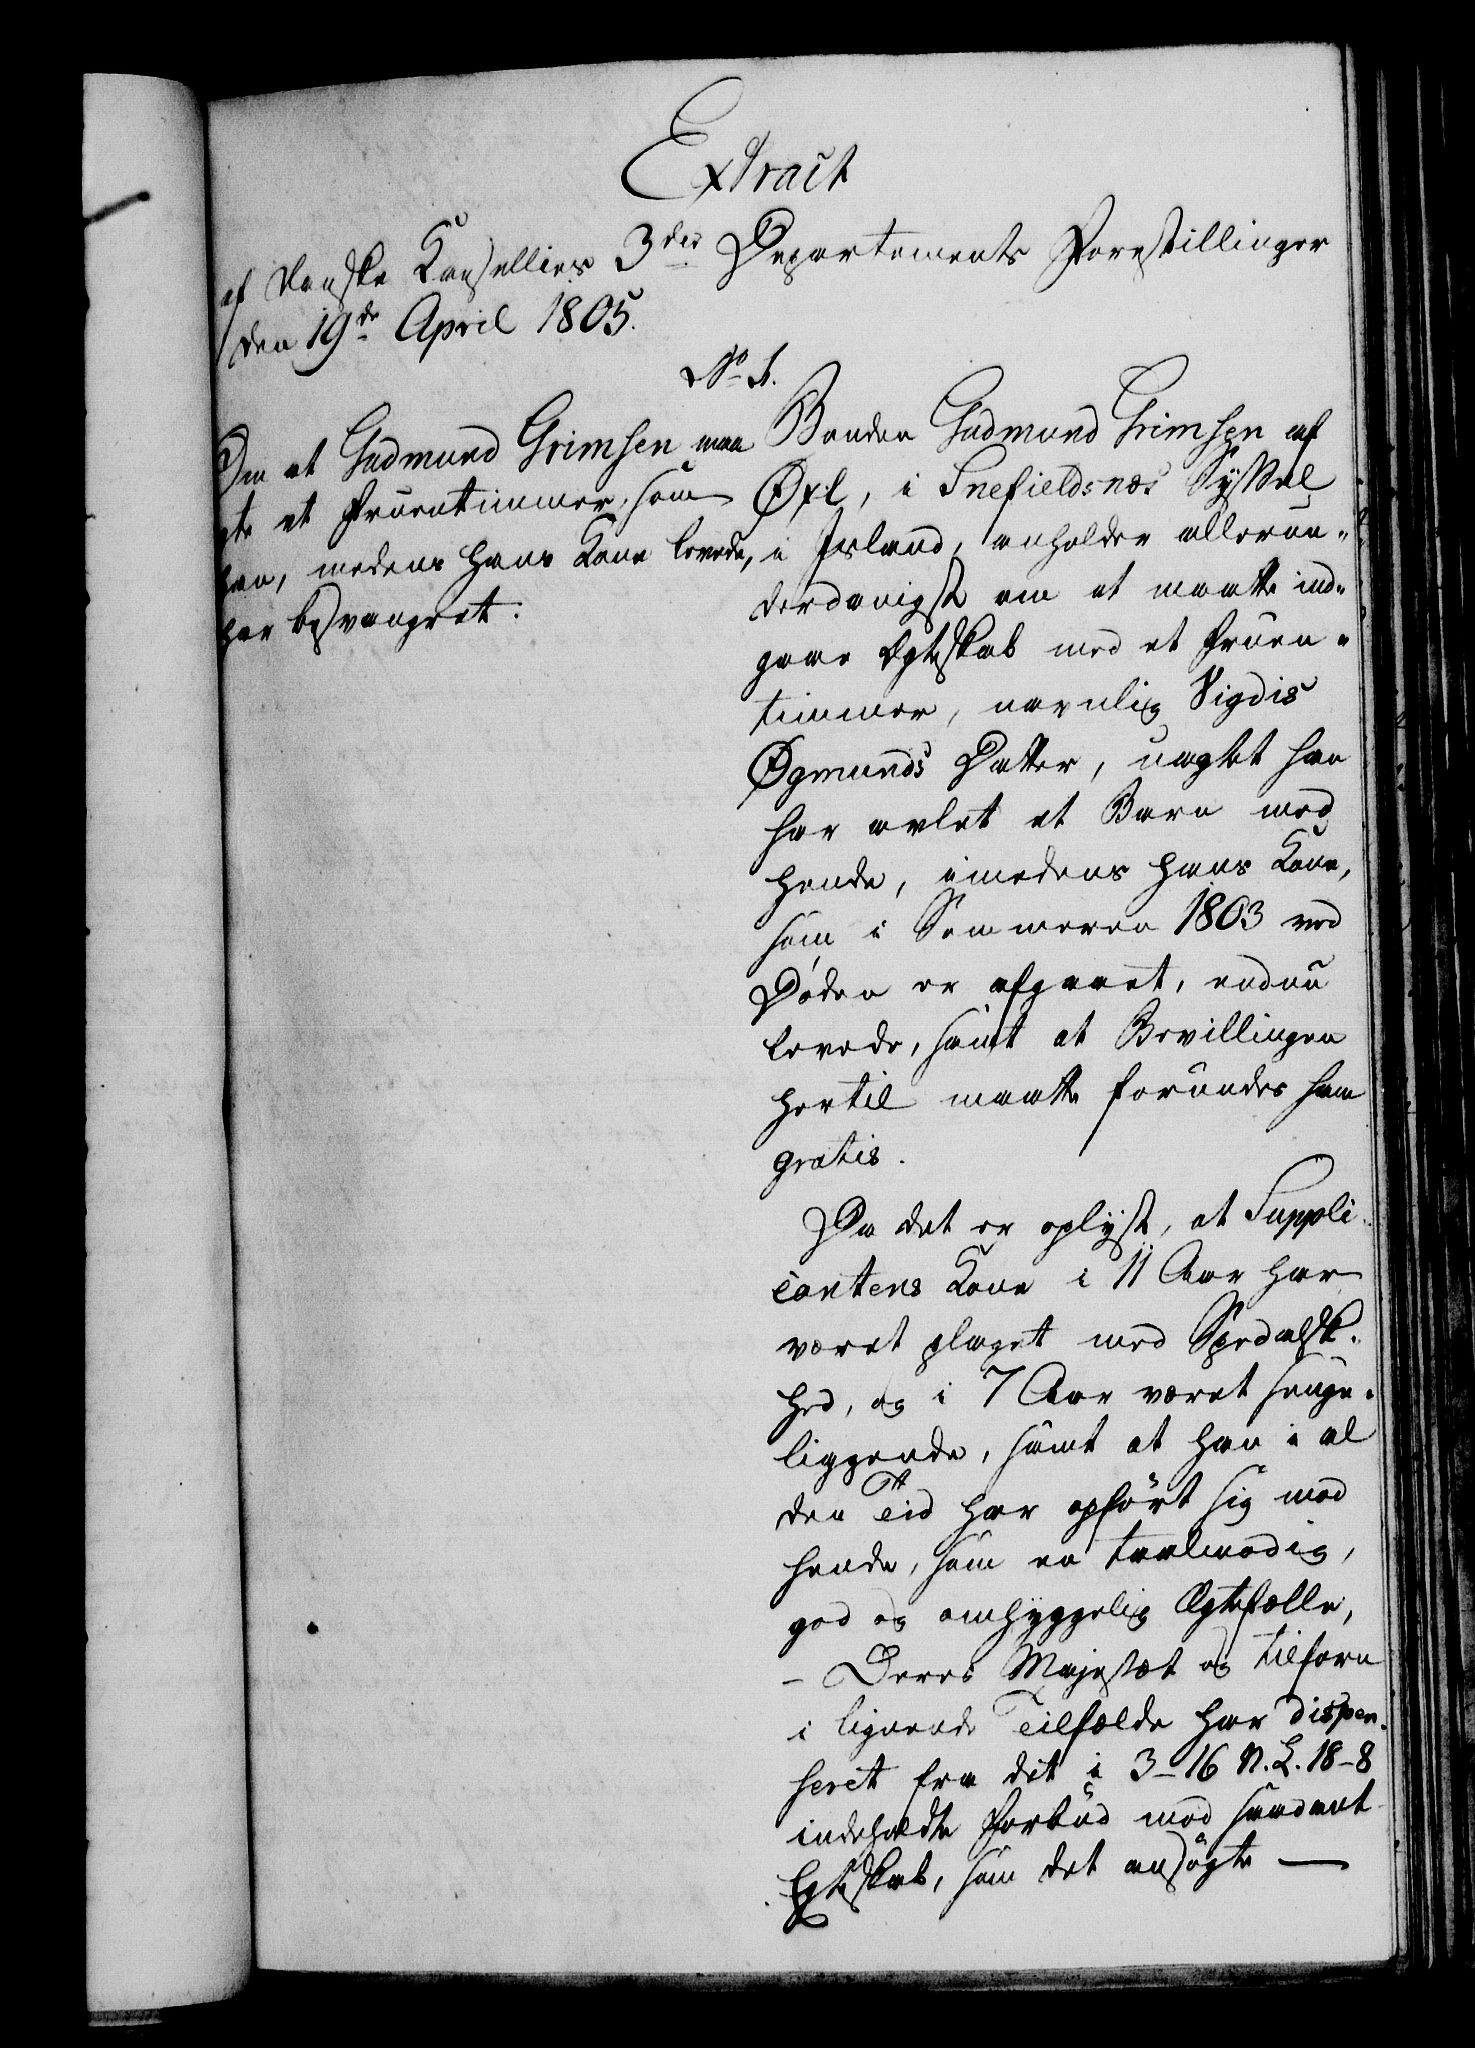 Extract
af Danske Kancelliets 3die Departements Forestillinger
den 19de April 1805.
No 1.
Om at Gudmund Grimsen maa
ægte et Fruentimmer, som
han, medens hans Kone levede,
har besvangret.
Bonden Gudmund Grimsen af
Øxl, i Snefieldsnæs Syssel
i Island, anholder allerun-
derdanigst om at maatte ind-
gaae Ægteskab med et Fruen-
timmer, navnlig Vigdis
Øgmunds Datter, uagtet han
har avlet et Barn med
hende, imedens hans Kone,
som i Sommeren 1803 ved
Døden er afgaaet, endnu
levede, samt at Bevillingen
hertil maatte forundes ham
gratis.
Da det er oplyst, at Suppli-
cantens Kone i 11 Aar har
været plaget med Spedalsk-
hed, og i 7 Aar været senge-
liggende, samt at han i al
den Tid har opført sig mod
hende, som en taalmodig,
god og omhyggelig Ægtefælle,
– Deres Majestæt og tilforn
i lignende Tilfælde har dispen-
seret fra det i 3–16 N. L. 18–8
indeholdte Forbud mod saadant
Egteskab, som det ansøgte —